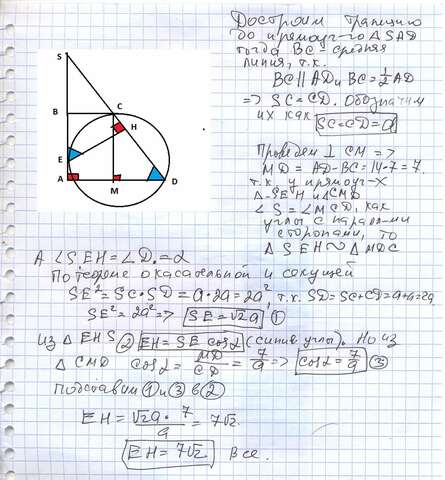 Достроим трапецию
до прямоуг-го Δ SAD
тогда BC - средняя
линия, т.к.
BC || AD и BC = 1/2 AD
=> SC = CD. Обозначим
их как SC = CD = a
S
B
C
H
E
A
M
D
Проведем ⊥ CM =>
MD = AD - BC = 14 - 7 = 7.
т.к. у прямоуг-х
Δ-SEH и ΔCMD
∠S = ∠MCD, как
углы с паралл-ми
сторонами, то
Δ SEH ∾ Δ MDC
А ∠SEH = ∠D = α
По теореме о касательной и секущей
SE² = SC · SD = a · 2a = 2a², т.к. SD = SC + CD = a + a = 2a
SE² = 2a² => SE = √2a ①
Из Δ EHS ② EH = SE cos α (синие углы). Но из
Δ CMD cos α = MD/CD = 7/a => cos α = 7/a ③
Подставим ① и ③ в ②
EH = √2a · 7/a = 7√2.
EH = 7√2. Все.